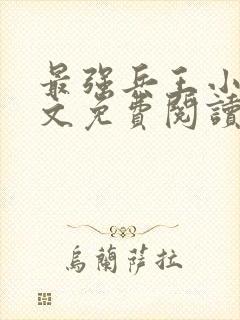 最強兵王小
文免費閱讀
烏蘭薩拉